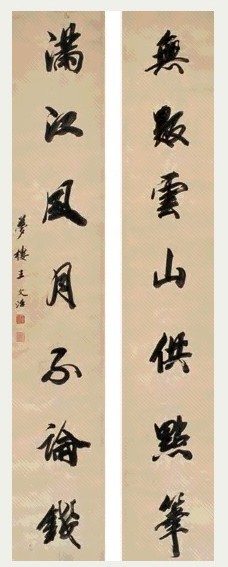 無數雲山供點筆
滿江風月不論錢
夢樓王文治